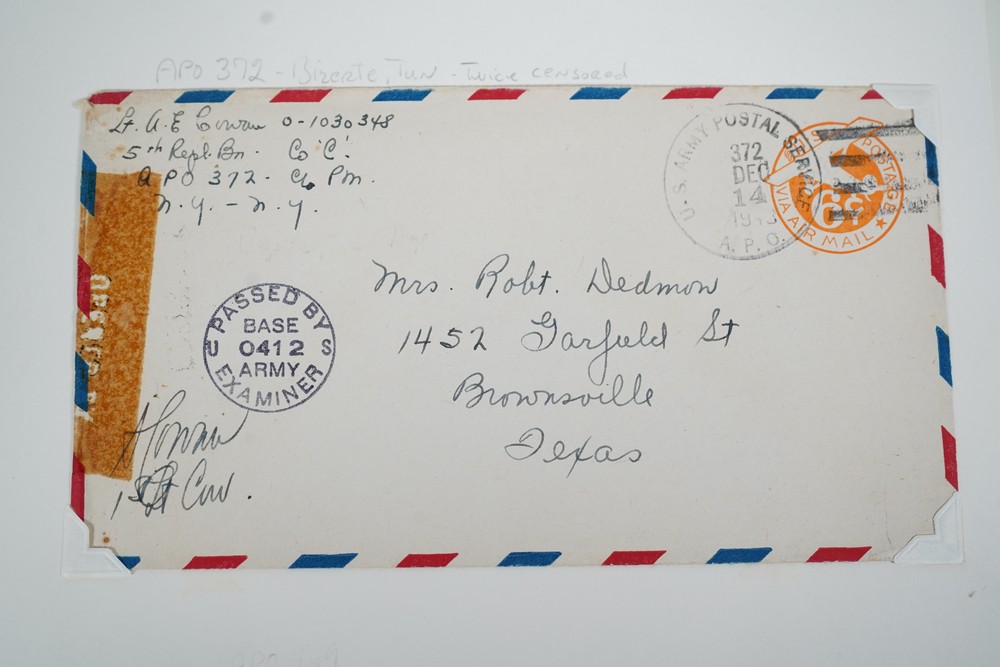 APO 372 - Bizerte, Tun - Twice censored
Lt. A. E Cowan O-1030348
5th Repl. Bn. Co C.
A PO 372 - C/o P.M.
N.Y. - N.Y.
U.S. ARMY POSTAL SERVICE
372
DEC
14
1943
A. P. O.
POSTAGE
6¢
VIA AIR MAIL
Mrs. Robt. Dedmon
1452 Garfield St
Brownsville
Texas
PASSED BY
BASE
U 0412 S
ARMY
EXAMINER
OPENED
A Cowan
1st Lt Cav.